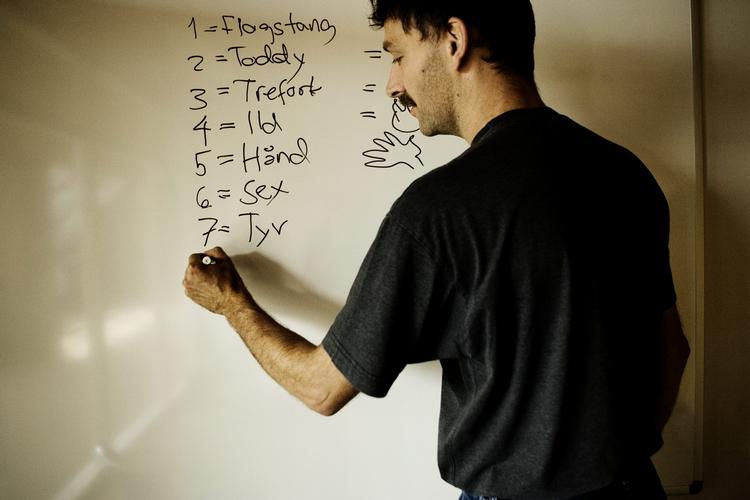 1 = Flagstang
2 = Toddy =
3 = Trefork =
4 = Ild =
5 = Hånd
6 = Sex
7 = Tyr